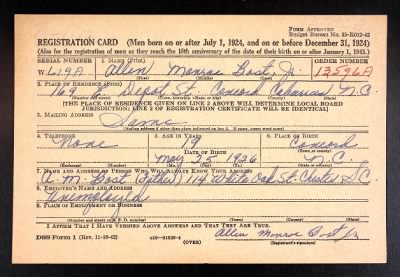 FORM APPROVED
Budget Bureau No. 33-R012-42
REGISTRATION CARD (Men born on or after July 1, 1924, and on or before December 31, 1924)
(Also for the registration of men as they reach the 18th anniversary of the date of their birth on or after January 1, 1943.)
SERIAL NUMBER 1. NAME (Print) ORDER NUMBER
W 419A Allen Monroe Bost, Jr. 13596A
(First) (Middle) (Last)
2. PLACE OF RESIDENCE (Print)
169 W Depot St. Concord Cabarrus N.C.
[THE PLACE OF RESIDENCE GIVEN ON LINE 2 ABOVE WILL DETERMINE LOCAL BOARD
JURISDICTION; LINE 2 OF REGISTRATION CERTIFICATE WILL BE IDENTICAL]
3. MAILING ADDRESS
Same
(Mailing address if other than place indicated on line 2. If same, insert word same)
4. TELEPHONE 5. AGE IN YEARS 6. PLACE OF BIRTH
None 19 Concord
DATE OF BIRTH
May 25 1926 N.C.
7. NAME AND ADDRESS OF PERSON WHO WILL ALWAYS KNOW YOUR ADDRESS
A. M. Bost (Father) 114 White Oak St. Chester S.C.
8. EMPLOYER'S NAME AND ADDRESS
Unemployed
9. PLACE OF EMPLOYMENT OR BUSINESS
I AFFIRM THAT I HAVE VERIFIED ABOVE ANSWERS AND THAT THEY ARE TRUE.
DSS Form 1 (Rev. 11-16-42) (OVER) Allen Monroe Bost Jr
(Registrant's signature)